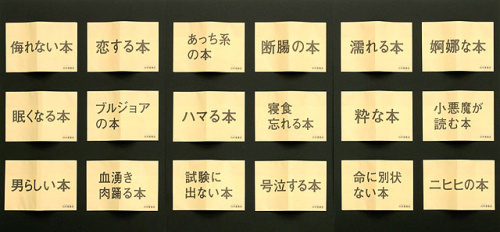 侮れない本
恋する本
あっち系
の本
断腸の本
濡れる本
婀娜な本
眠くなる本
ブルジョア
の本
ハマる本
寝食
忘れる本
粋な本
小悪魔が
読む本
男らしい本
血湧き
肉踊る本
試験に
出ない本
号泣する本
命に別状
ない本
ニヒヒの本